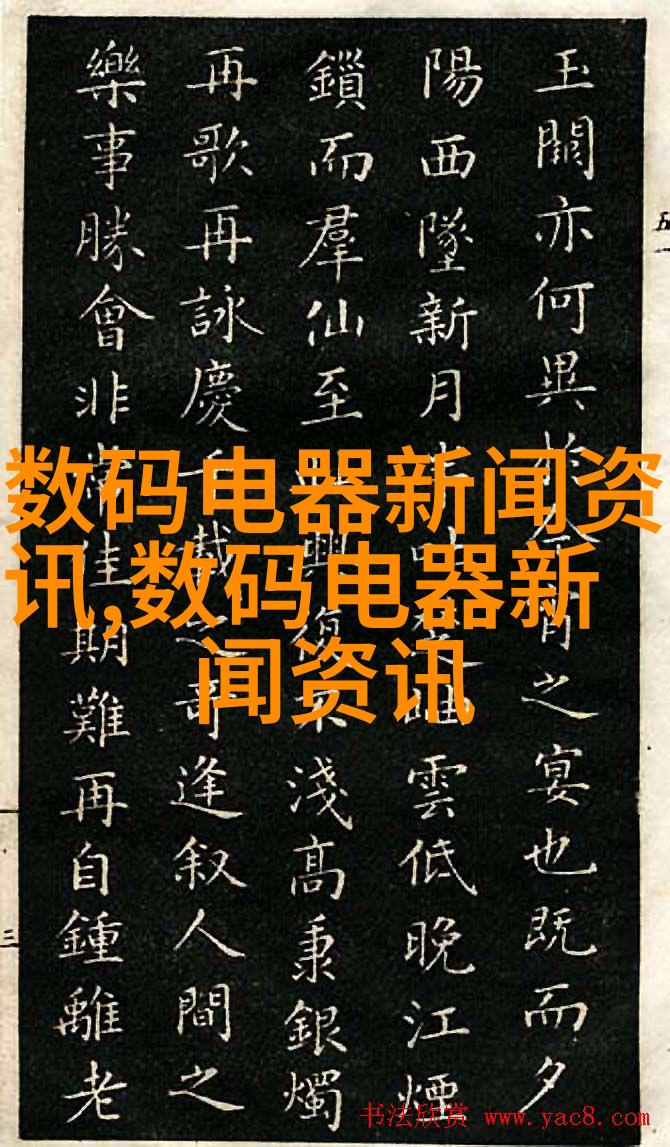 玉闕亦何異於今宵之宴也既而夕
陽西墜新月半吐楚岫雲低晚江煙
鎖而羣仙至興復不淺高秉銀燭
再歌再詠慶千載之奇逢叙人間之
樂事勝會非常佳期難再自鍾離老
数码电器新闻资
讯,数码电器新
闻资讯
五
三
书法欣赏 www.yac8.com